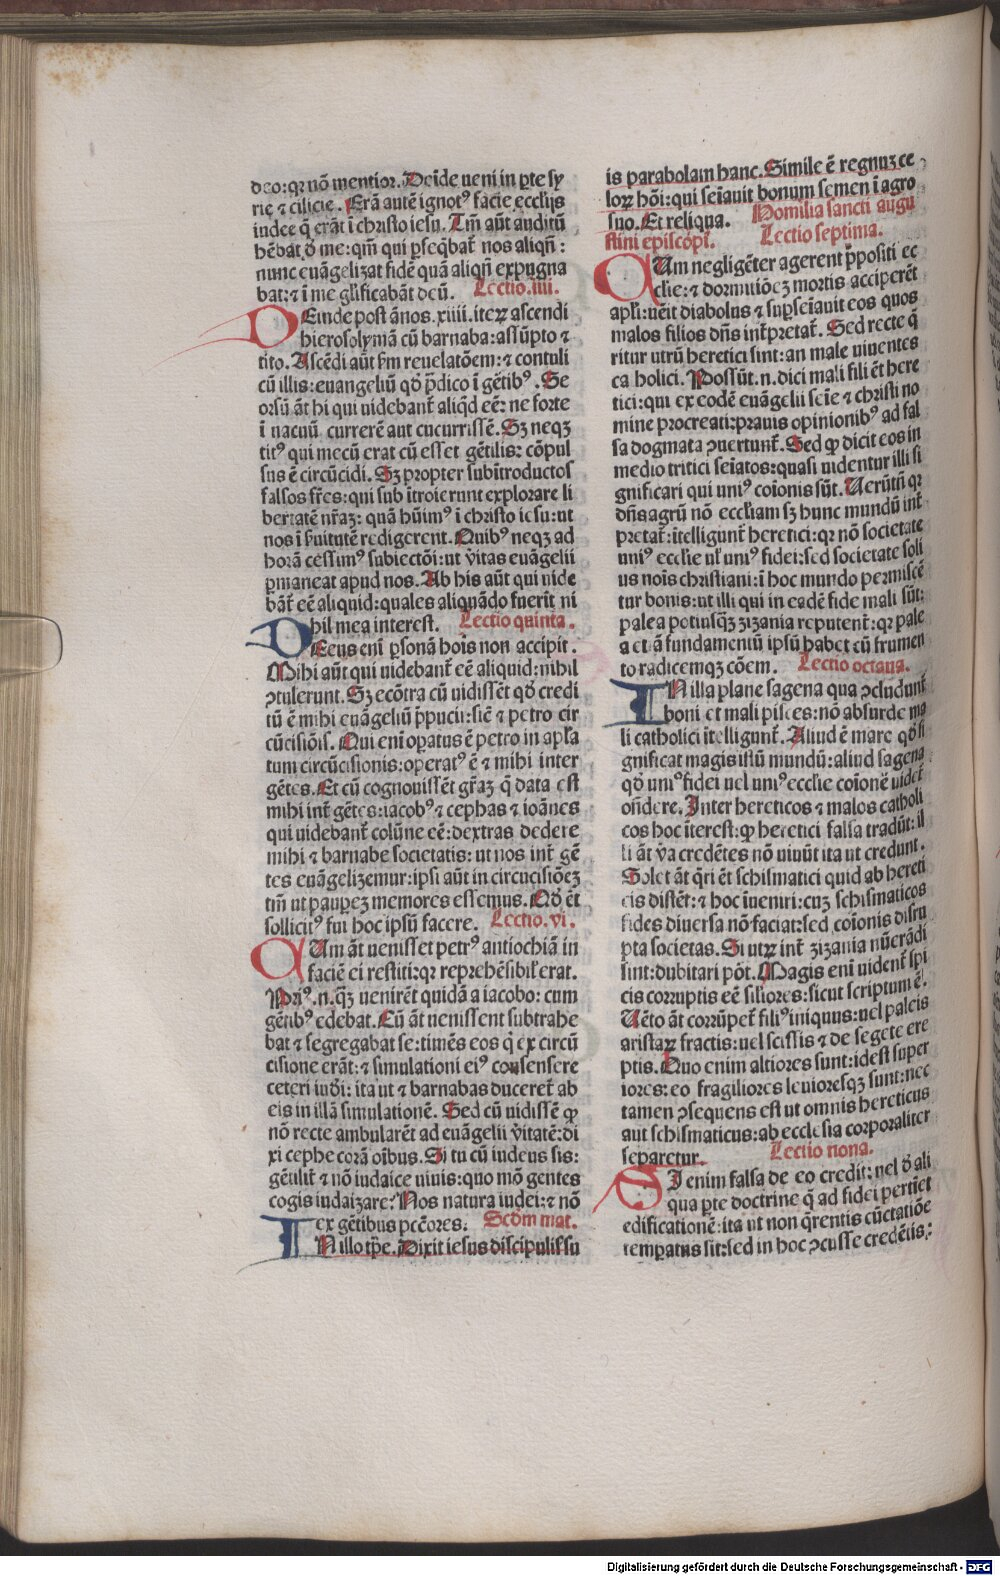 deo: qꝛ nō mentior. Deīde ueni in ꝑte sy
rie ⁊ cilicie. Erā autē ignotꝰ facie eccl'ijs
iudee q̄ erāt ī christo iesu. Tm̄ aūt auditū
hēbāt ꝺ me: qm̄ qui ꝑseq̄bat̄ nos aliqn̄:
nunc euāgelizat fidē quā aliqn̄ expugna
bat: ⁊ ī me gl'ificabāt deū. Lectio. iiii.
DEinde post ānos. xiiii. iteꝝ ascendi
hierosolymā cū barnaba: assūpto ⁊
tito. Ascēdi aūt s̄m reuelatōem: ⁊ contuli
cū illis: euangeliū qḋ p̄dico ī gētibꝰ. Se
orsū āt hi qui uidebant̄ aliqd̄ eē: ne forte
ī uacuū currerē aut cucurrissē. Sꝫ neqꝫ
titꝰ qui mecū erat cū esset gētilis: cōpul
sus ē circūcidi. Sꝫ propter subītroductos
falsos fr̄es: qui subītroierunt explorare li
bertatē nr̄aꝫ: quā hūimꝰ ī christo iesu: ut
nos ī s̄uitutē redigerent. Quibꝰ neqꝫ ad
horā cessimꝰ subiectōi: ut v̄itas euāgelii
ꝑmaneat apud nos. Ab his aūt qui uide
bāt̄ eē aliquid: quales aliquādo fuerīt ni
hil mea interest. Lectio quinta.
DEeus eni ꝑsonā hoīs non accipit.
Mihi aūt qui uidebant̄ eē aliquid: nihil
ꝯtulerunt. Sꝫ ecōtra cū uidissēt qḋ credi
tū ē mihi euāgeliū p̄pucii: sic̄ ⁊ petro cir
cūcisiōis. Qui eni oꝑatus ē petro in apl'a
tum circūcisionis: operatꝰ ē ⁊ mihi inter
gētes. Et cū cognouissēt gr̄aꝫ q̄ data est
mihi int̄ gētes: iacobꝰ ⁊ cephas ⁊ ioānes
qui uidebant̄ colūne eē: dextras dedere
mihi ⁊ barnabe societatis: ut nos int̄ gē
tes euāgelizemur: ipsi aūt in circūcisiōeꝫ
tm̄ ut pauꝑeꝫ memores essemus. Qḋ ēt
sollicitꝰ fui hoc ipsū facere. Lectio. vi.
CUm āt uenisset petrꝰ antiochiā in
faciē ei restiti: qꝛ reprehēsibil' erat.
Priꝰ. n. q̄ꝫ uenirēt quidā a iacobo: cum
gētibꝰ edebat. Cū āt uenissent subtrahe
bat ⁊ segregabat se: timēs eos q̄ ex circū
cisione erāt: ⁊ simulationi eiꝰ consensere
ceteri iudi: ita ut ⁊ barnabas duceret̄ ab
eis in illā simulationē. Sed cū uidissē ꝙ
nō recte ambularēt ad euāgelii v̄itatē: di
xi cephe corā oībus. Si tu cū iudeus sis:
gētilit̄ ⁊ nō iudaice uiuis: quo mō gentes
cogis iudaizare? Nos natura iudei: ⁊ nō
ex gētibus pc̄cōres. Scḋm mat.
IN illo tꝑe. Dixit iesus discipulis su
is parabolam hanc. Simile ē regnuꝫ ce
loꝝ hōi: qui seīauit bonum semen ī agro
suo. Et reliqua. Homilia sancti augu
stini episcopi. Lectio septima.
CUm negligēter agerent p̄positi ec
cl'ie: ⁊ dormitiōeꝫ mortis acciperēt
apl'i: uēit diabolus ⁊ suꝑseīauit eos quos
malos filios dn̄s int̄pretat̄. Sed recte q̄
ritur utrū heretici sint: an male uiuentes
ca holici. Possūt. n. dici mali filii ēt here
tici: qui ex codē euāgelii seīe ⁊ christi no
mine procreati: prauis opinionibꝰ ad fal
sa dogmata ꝯuertunt̄. Sed ꝙ dicit eos in
medio tritici seīatos: quasi uidentur illi si
gnificari qui uniꝰ coīonis sūt. Uerūtn̄ qꝛ
dn̄s agrū nō eccl'iam sꝫ hunc mundū int̄
pretat̄: ītelligunt̄ heretici: qꝛ nō societate
uniꝰ eccl'ie ul' uniꝰ fidei: sed societate soli
us nois christiani: ī hoc mundo permiscē
tur bonis: ut illi qui in eadē fide mali sūt:
palea potiusqꝫ zizania reputent̄: qꝛ pale
a etiā fundamentū ipsū habet cū frumen
to radicemqꝫ cōem. Lectio octaua.
IN illa plane sagena qua ꝯcludunt̄
boni et mali pisces: nō absurde ma
li catholici ītelligunt̄. Aliud ē mare qḋ si
gnificat magis istū mundū: aliud sagena
qḋ uniꝰ fidei uel uniꝰ eccl'ie coīonē uidet̄
on̄dere. Inter hereticos ⁊ malos catholi
cos hoc īterest: ꝙ heretici falsa tradūt: il
li āt v̄a credētes nō uiuūt ita ut credunt.
Solet āt q̄ri ēt schismatici quid ab hereti
cis distēt: ⁊ hoc īueniri: cuꝫ schismaticos
fides diuersa nō faciat: sed coīonis disru
pta societas. Si utꝝ int̄ zizania nūerādi
sint: dubitari pōt. Magis eni uident̄ spi
cis corruptis eē sil'iores: sicut scriptum ē.
Uēto āt corrūpet̄ filiꝰ iniquus: uel paleis
aristaꝝ fractis: uel scissis ⁊ de segete ere
ptis. Quo enim altiores sunt: idest super
iores: eo fragiliores leuioresqꝫ sunt: nec
tamen ꝯsequens est ut omnis hereticus
aut schismaticus: ab ecclesia corporaliter
separetur. Lectio nona.
SI enim falsa de eo credit: uel ꝺ ali
qua ꝑte doctrine q̄ ad fidei pertiēt
edificationē: ita ut non q̄rentis cūctatiōe
temꝑatus sit: sed in hoc ꝯcusse credētis:
Digitalisierung gefördert durch die Deutsche Forschungsgemeinschaft - DFG